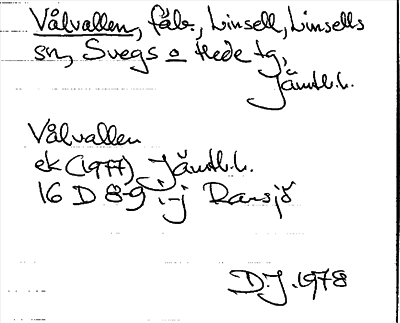 Vålvallen, fäb., Linsell, Linsells
sn, Svegs o Hede tg,
Jämtl.l.
Vålvallen
ek (1977) Jämtl.l.
16 D 8-9 i-j Ransjö
D.J. 1978